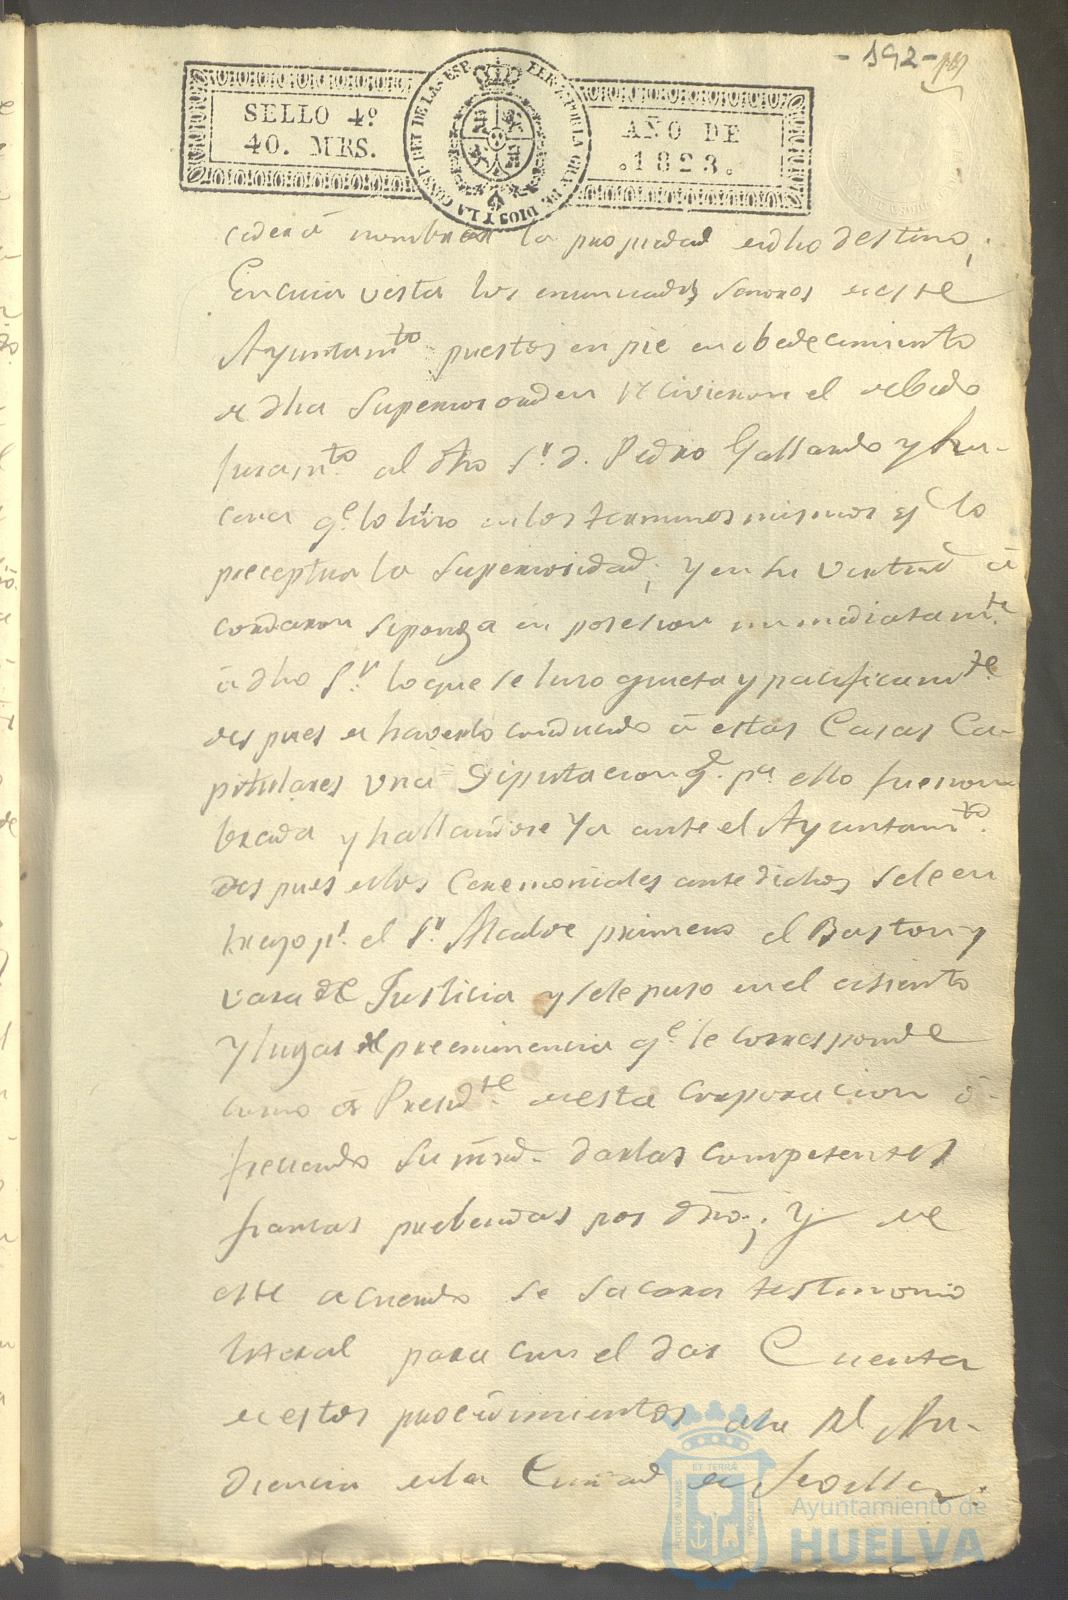 - 192 -
SELLO 4º
40. MRS.
FERN. 7. POR LA GRA. DE DIOS Y LA CONST. REY DE LAS ESP.
AÑO DE
1823.
cederá nombrar la propiedad en dho destino,
En cuia vista los enunciados Senores de este
Ayuntamto puestos en pie en obedecimiento
de dha Superior orden recivieron el debido
Juramto al dho Sr. D. Pedro Gallardo y
qe lo hizo en los terminos mismos q lo
preceptua la Superioridad; y en su virtud a
cordaron se ponga en posesion immediatamte
á dho Sr. lo que se hizo quieta y pacificamte
despues de haverlo conducido á estas Casas Ca-
pitulares una Diputacion q. pa ello fue nom
brada y hallandose ya ante el Ayuntamto
despues de los Ceremoniales antedichos se le en
trego pr. el Sr. Alcalde primero el Baston y
vara de Justicia y se le puso en el asiento
y lugar de preeminencia qe le corresponde
como á Presidte de esta corporacion o-
freciendo su mrd. dar las competentes
fianzas prebenidas por dro.; y de
este acuerdo se sacara testimonio
literal para con el dar Cuenta
de estos procedimientos a la Rl Au-
diencia de la Ciudad de Sevilla.
Ayuntamiento de
HUELVA